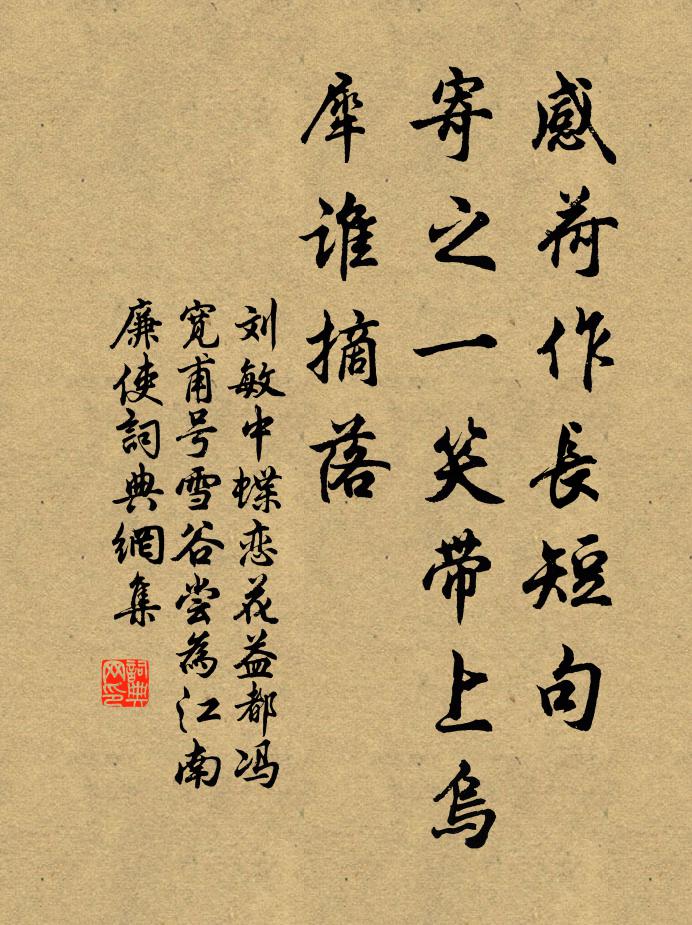 感荷作長短句
寄之一笑带上烏
犀谁摘落
刘敏中蝶恋花益都冯
宽甫号雪谷尝為江南
廉使詞典網集
詞典
网印